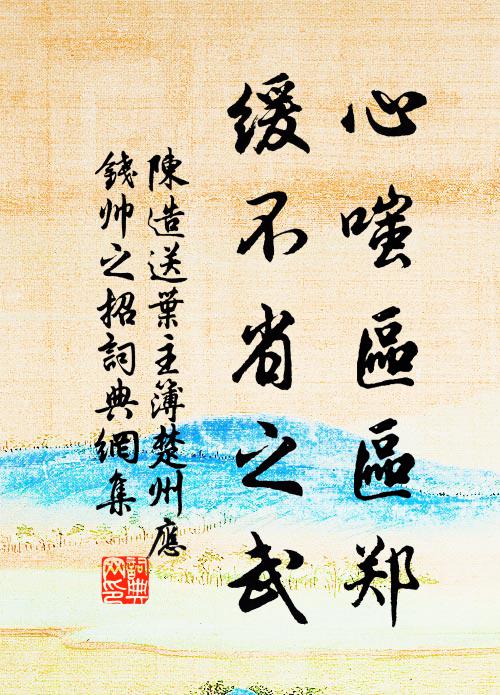 心嗤區區郑
缓不省之武
陳造送葉主簿楚州應
錢帅之招詞典網集
詞典網印